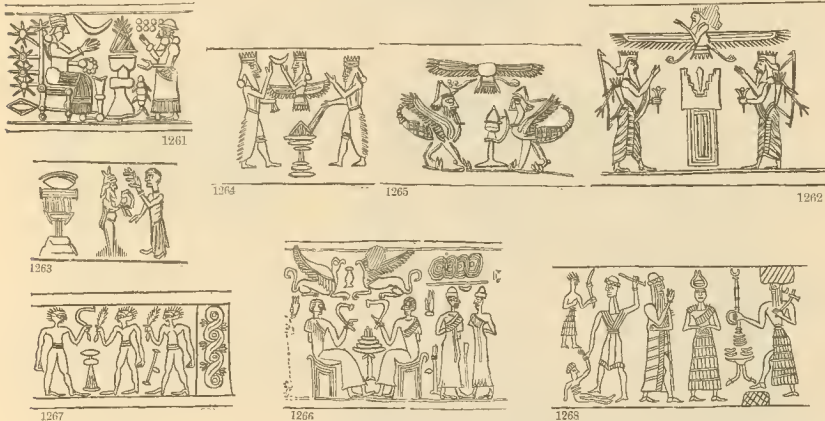 1261
1264
1265
1262
1263
1267
1266
1268